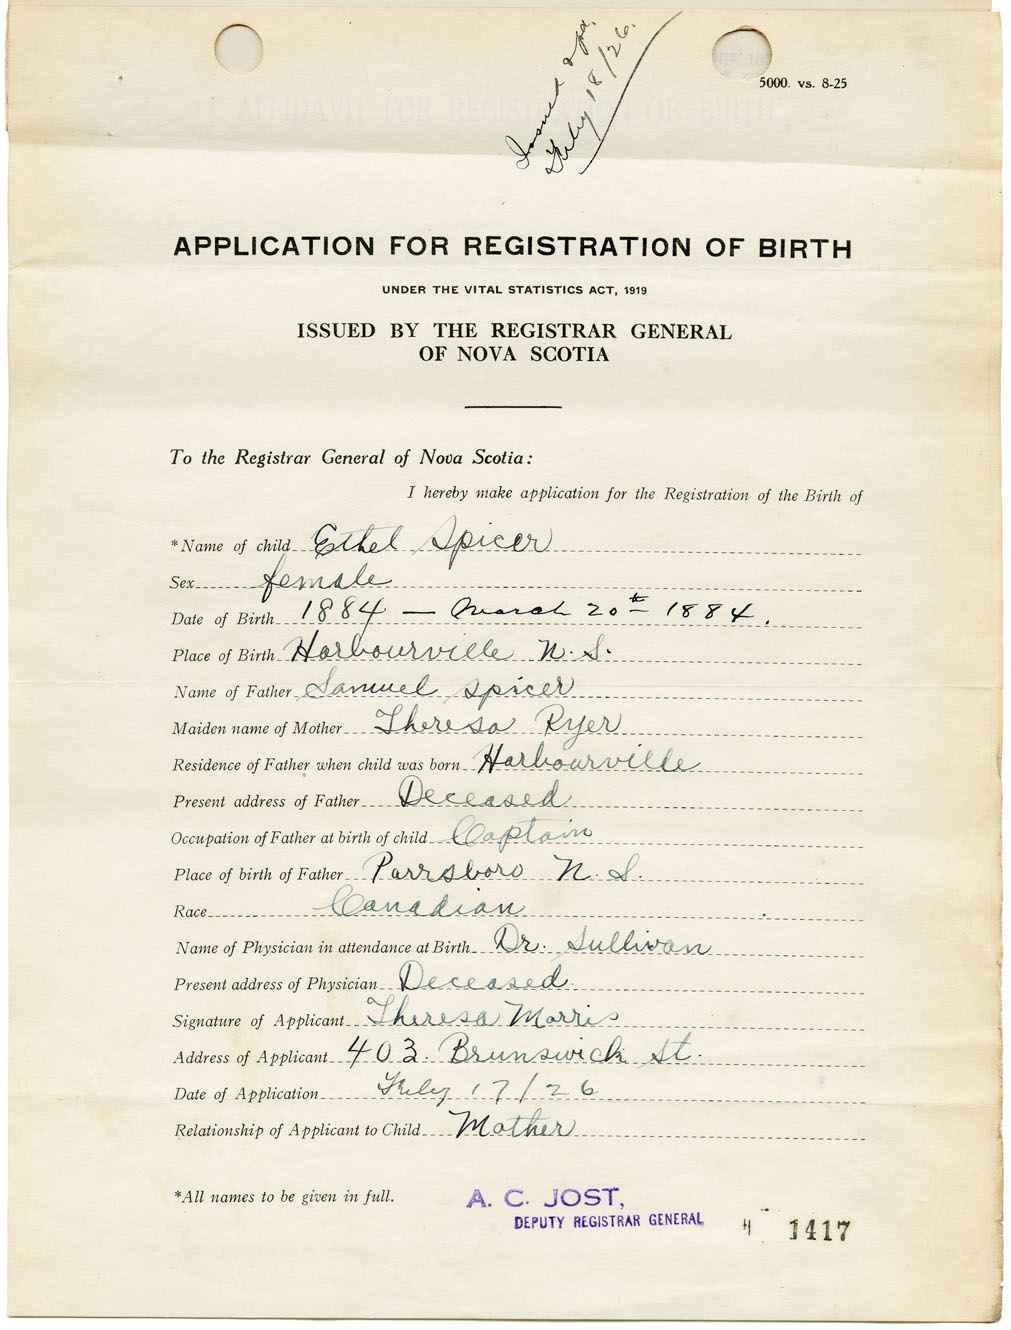 Issued & pd.
Feby 18/26.
5000. vs. 8-25
APPLICATION FOR REGISTRATION OF BIRTH
UNDER THE VITAL STATISTICS ACT, 1919
ISSUED BY THE REGISTRAR GENERAL
OF NOVA SCOTIA
To the Registrar General of Nova Scotia:
I hereby make application for the Registration of the Birth of
*Name of child Ethel Spicer
Sex female
Date of Birth 1884 — March 20th 1884.
Place of Birth Harbourville N.S.
Name of Father Samuel Spicer
Maiden name of Mother Theresa Ryer
Residence of Father when child was born Harbourville
Present address of Father Deceased
Occupation of Father at birth of child Captain
Place of birth of Father Parrsboro N.S.
Race Canadian
Name of Physician in attendance at Birth Dr. Sullivan
Present address of Physician Deceased.
Signature of Applicant Theresa Morris
Address of Applicant 403. Brunswick St.
Date of Application Feby 17/26
Relationship of Applicant to Child Mother
*All names to be given in full.
A. C. JOST,
DEPUTY REGISTRAR GENERAL
1417